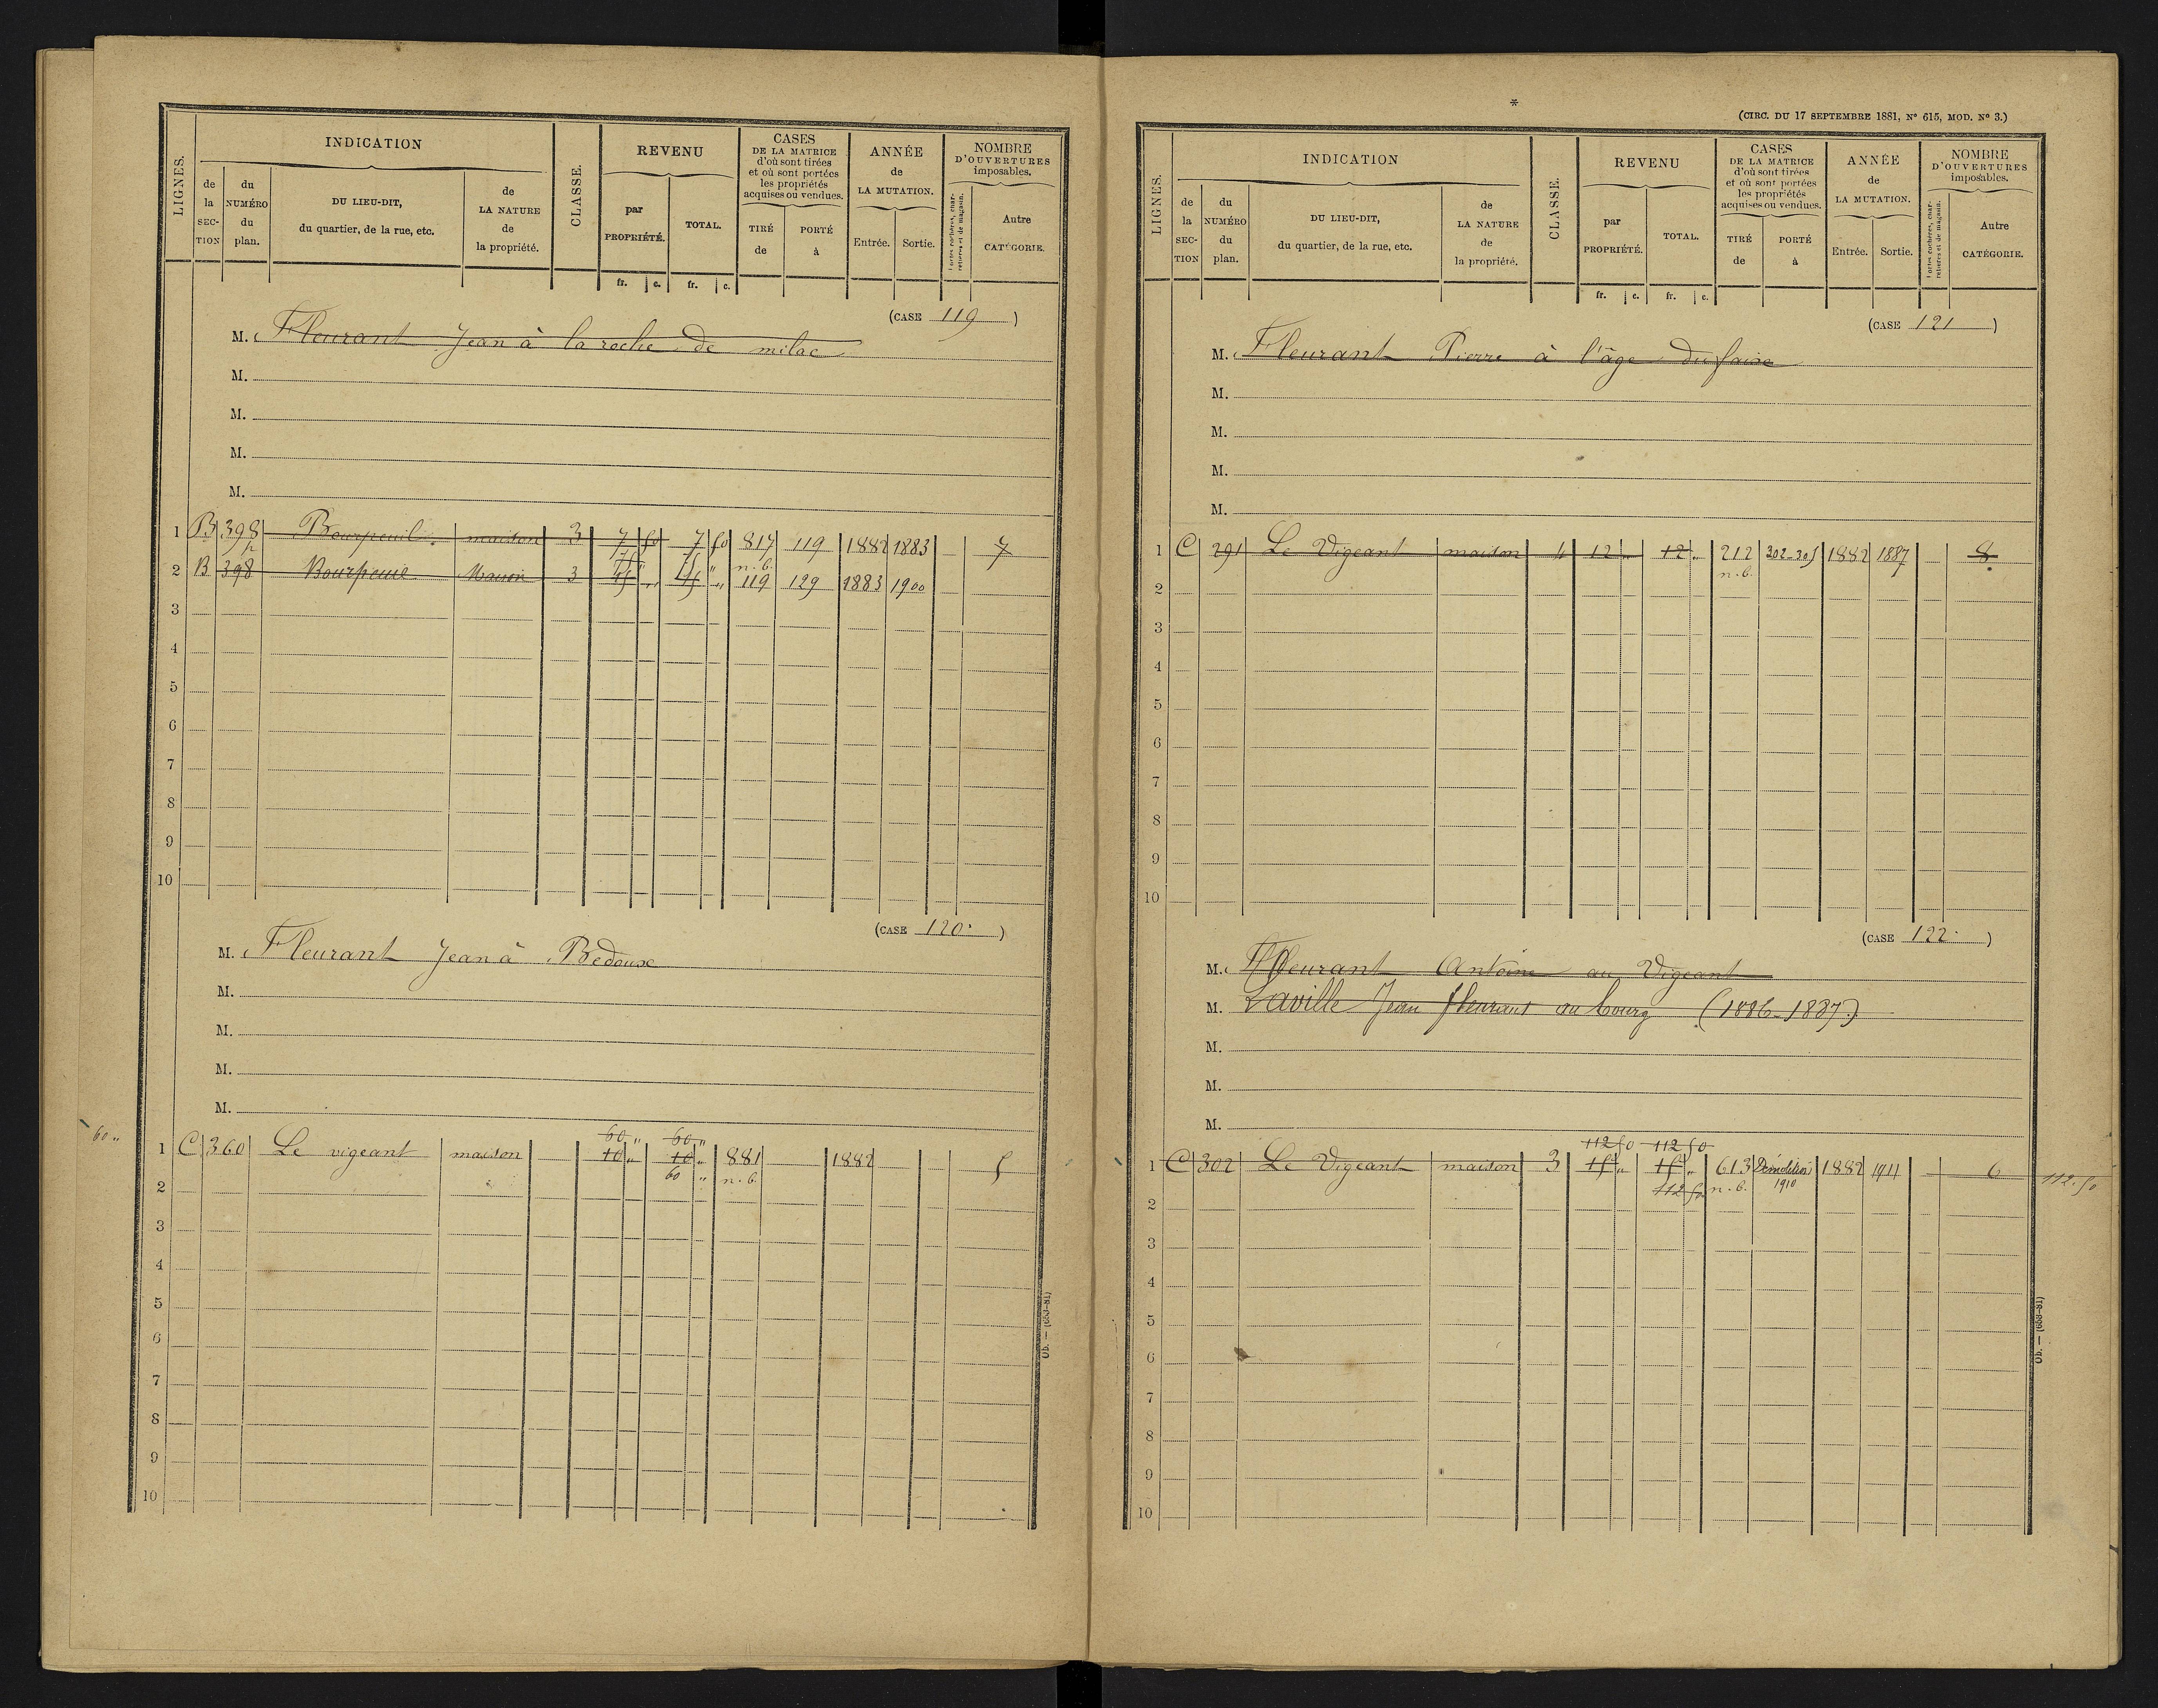 LIGNES.
INDICATION
CLASSE.
REVENU
CASES
DE LA MATRICE
d'où sont tirées
et où sont portées
les propriétés
acquises ou vendues.
ANNÉE
de
LA MUTATION.
NOMBRE
D'OUVERTURES
imposables.
de
la
SEC-
TION
du
NUMÉRO
du
plan.
DU LIEU-DIT,
du quartier, de la rue, etc.
de
LA NATURE
de
la propriété.
par
PROPRIÉTÉ.
TOTAL.
TIRÉ
de
PORTÉ
à
Entrée.
Sortie.
Portes cochères, char-
retières et de magasin.
Autre
CATÉGORIE.
fr. c. fr. c.
(CASE 119 )
M. Fleurant Jean à la roche de milac
M.
M.
M.
M.
1 B 398 Bourpeuil maison 3 7 50 7 50 817 119 1882 1883 7
p 75 " 75 " n.b.
2 B 398 Bourpeuil Maison 3 15 " 15 " 119 129 1883 1900
3
4
5
6
7
8
9
10
(CASE 120 )
M. Fleurant Jean à Bedoux
M.
M.
M.
M.
60 " 60 " 60 "
1 C 360 Le vigeant maison 10 " 10 " 881 1882 5
60 " n.b.
2
3
4
5
6
7
8
9
10
Ob. — (683-81)
*
(CIRC. DU 17 SEPTEMBRE 1881, N° 615, MOD. N° 3.)
LIGNES.
INDICATION
CLASSE.
REVENU
CASES
DE LA MATRICE
d'où sont tirées
et où sont portées
les propriétés
acquises ou vendues.
ANNÉE
de
LA MUTATION.
NOMBRE
D'OUVERTURES
imposables.
de
la
SEC-
TION
du
NUMÉRO
du
plan.
DU LIEU-DIT,
du quartier, de la rue, etc.
de
LA NATURE
de
la propriété.
par
PROPRIÉTÉ.
TOTAL.
TIRÉ
de
PORTÉ
à
Entrée.
Sortie.
Portes cochères, char-
retières et de magasin.
Autre
CATÉGORIE.
fr. c. fr. c.
(CASE 121 )
M. Fleurant Pierre à l'âge du faire
M.
M.
M.
M.
1 C 291 Le Vigeant maison 4 12 " 12 " 212 302-305 1882 1887 8
n.b.
2
3
4
5
6
7
8
9
10
(CASE 122 )
M. Fleurant Antoine au Vigeant
M. Laville Jean fleurant au bourg (1886-1887)
M.
M.
M.
112 50 112 50
1 C 302 Le Vigeant maison 3 15 " 15 " 613 Démolition 1882 1911 6
112 50 n.b. 1910 112.50
2
3
4
5
6
7
8
9
10
Ob. — (683-81)